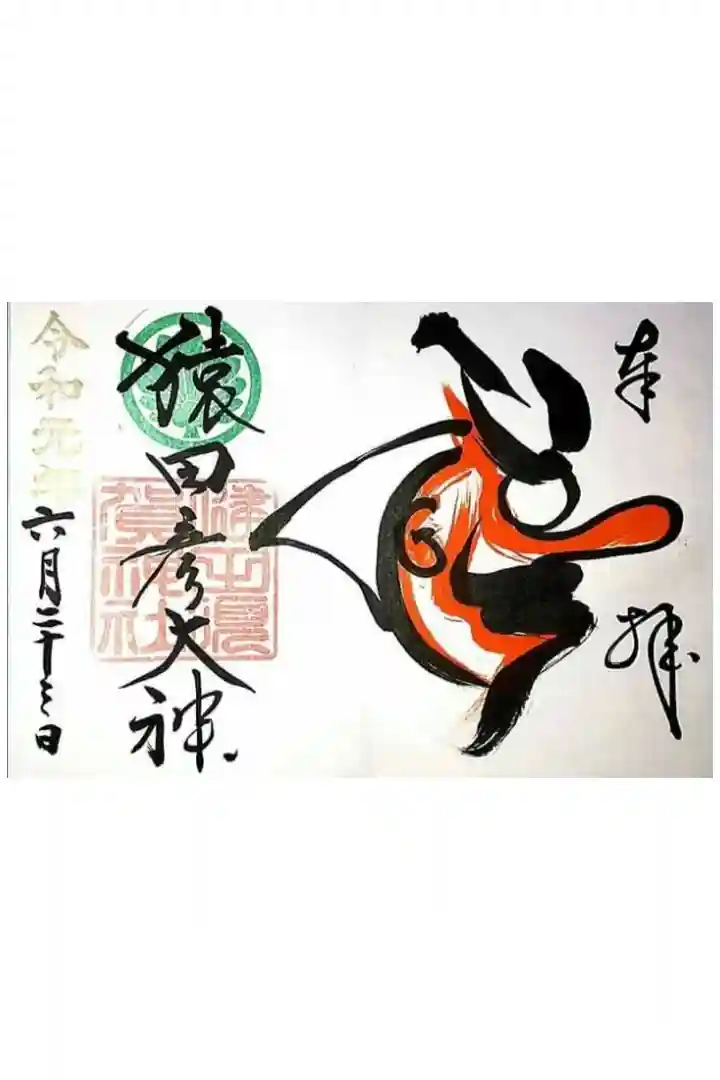 奉拝
猿田彦大神
賀神社
令和元年
六月二十三日